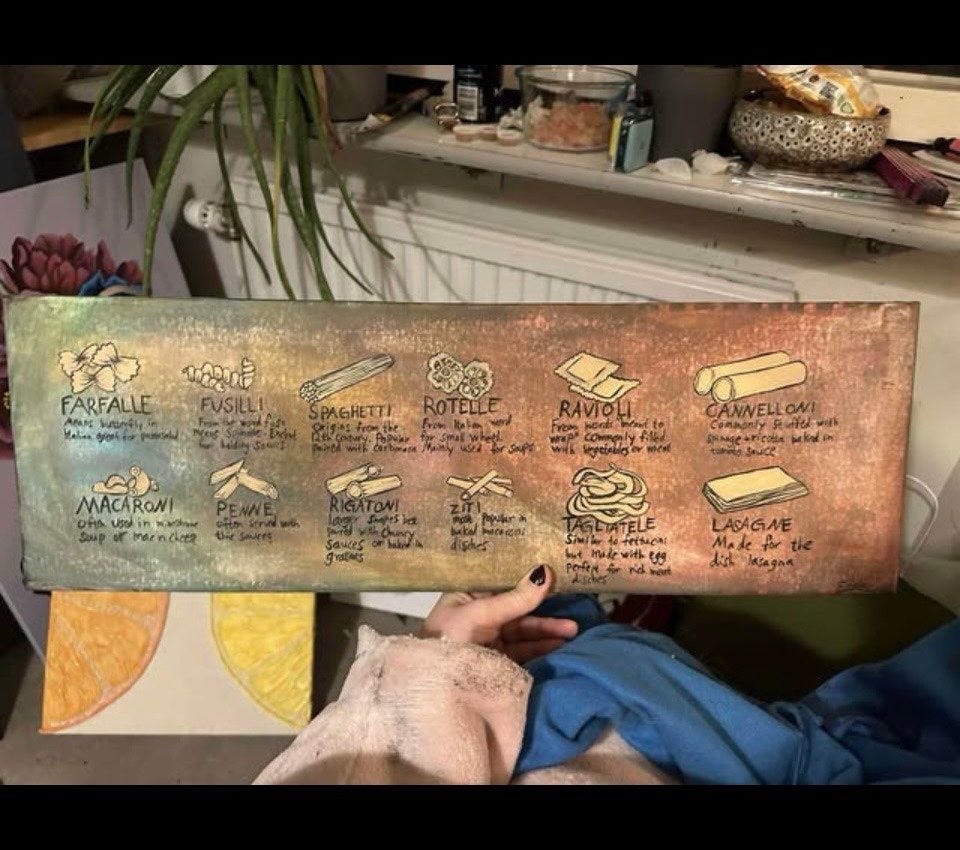 FARFALLE
Means butterfly in
Italian great for pastasalad
FUSILLI
From the word fuso
means spindle. Excellent
for holding sauces
SPAGHETTI
Origins from the
12th century. Popular
paired with carbonara
ROTELLE
From Italian word
for small wheel.
Mainly used for soups
RAVIOLI
From words meant to
wrap commonly filled
with vegetables or meat
CANNELLONI
Commonly stuffed with
spinage + ricotta baked in
tomato sauce
MACARONI
Often used in minestrone
Soup or mac n cheese
PENNE
often served with
sauces
RIGATONI
larger shapes best
paired with chunky
sauces or baked in
ZITI
most popular in
baked
disches
TAGLIATELE
Similar to
but made with egg
perfect for rich meat
disches
LASAGNE
Made for the
dish lasagna